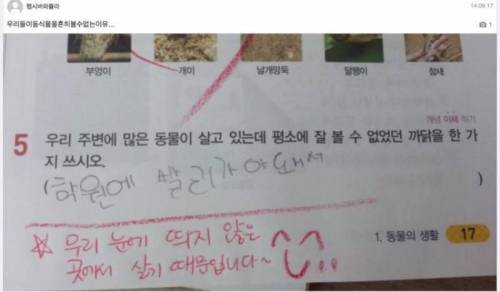 펩시바와플라
14.09.17
우리들이동식물을흔히볼수없는이유....
1
부엉이 개미 날개망둑 달팽이 참새
개념 이해 하기
5 우리 주변에 많은 동물이 살고 있는데 평소에 잘 볼 수 없었던 까닭을 한 가
지 쓰시오.
(학원에 빨리가야돼서
☆ 우리 눈에 띄지 않는
곳에서 살기 때문입니다~
1. 동물의 생활 17